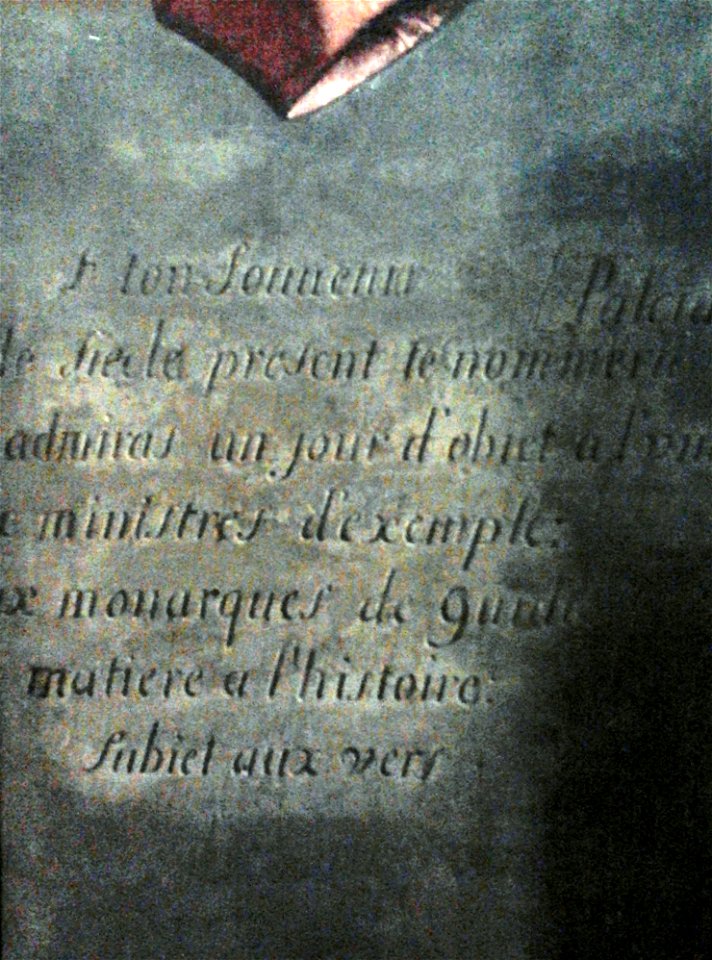 ton Souuenir
siecle present te nommera
admiras un jour d'obiet a l'vn
ministres d'exemple:
monarques de guide
matiere a l'histoire:
Subiet aux vers